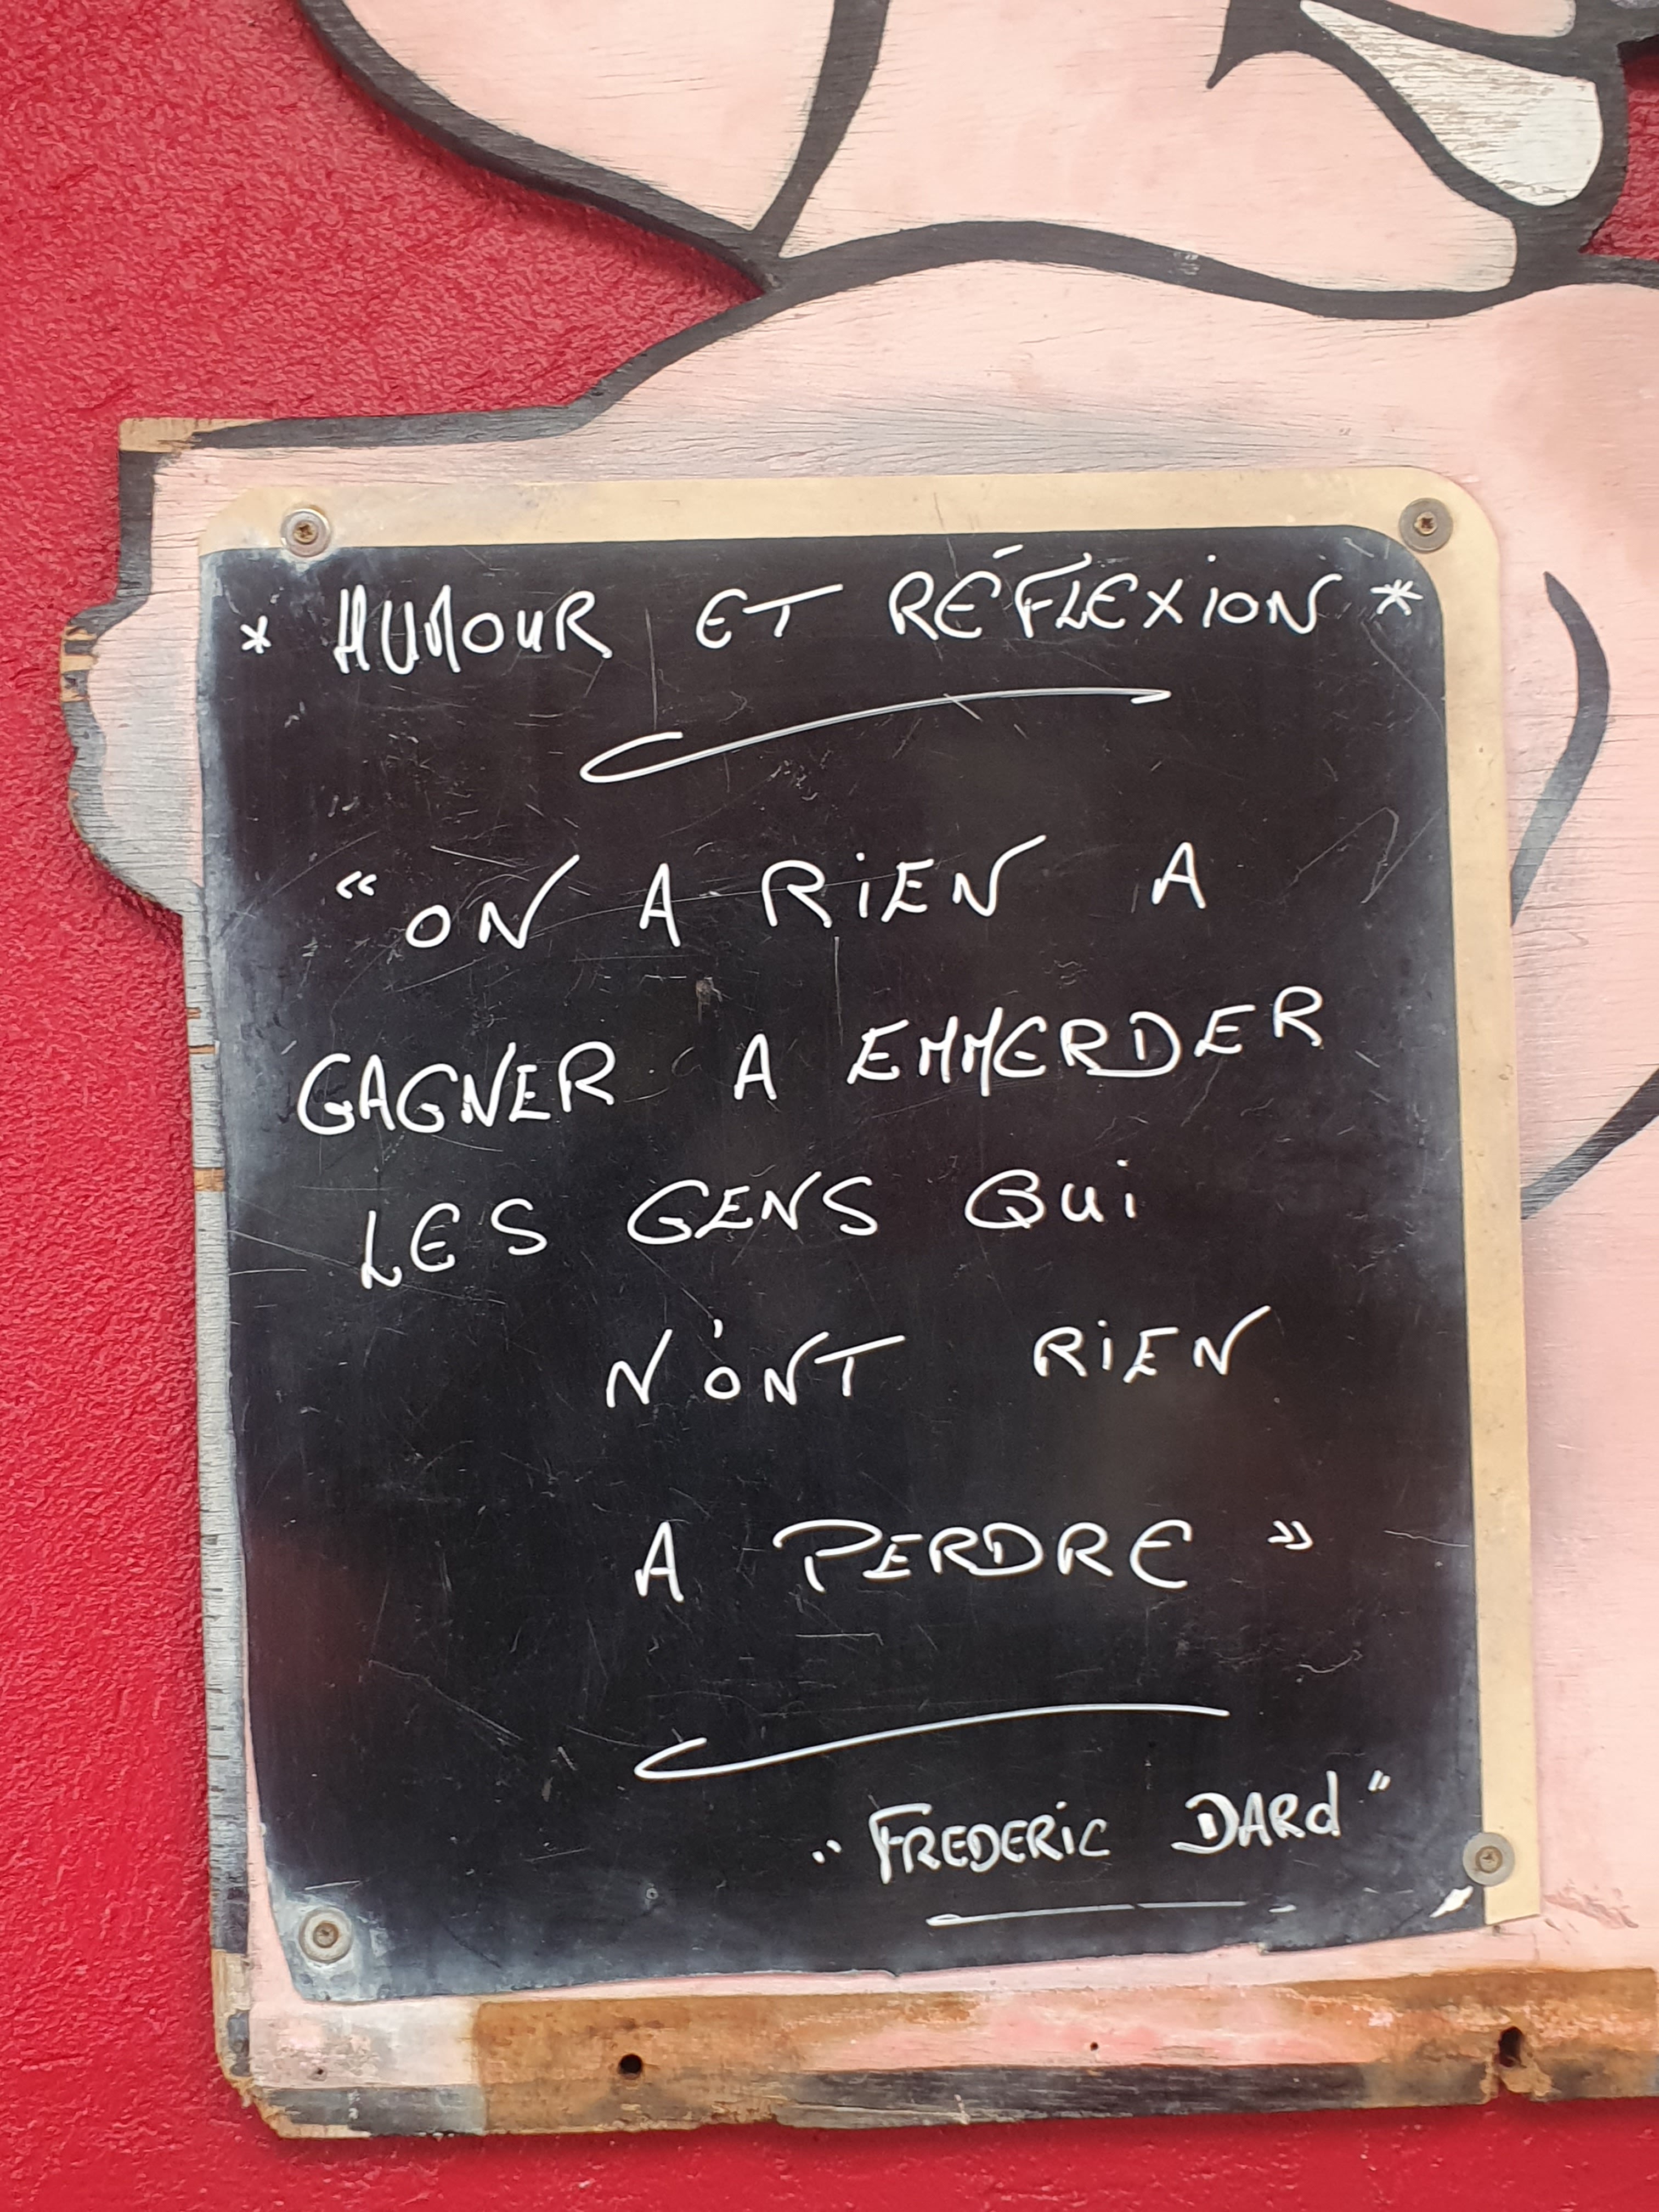 * HUMOUR ET RÉFLEXION *
"ON A RiEN A
GAGNER A EMMERDER
LES GENS QUi
N'ONT RiEN
A PERDRE "
" FREDERiC DARd "